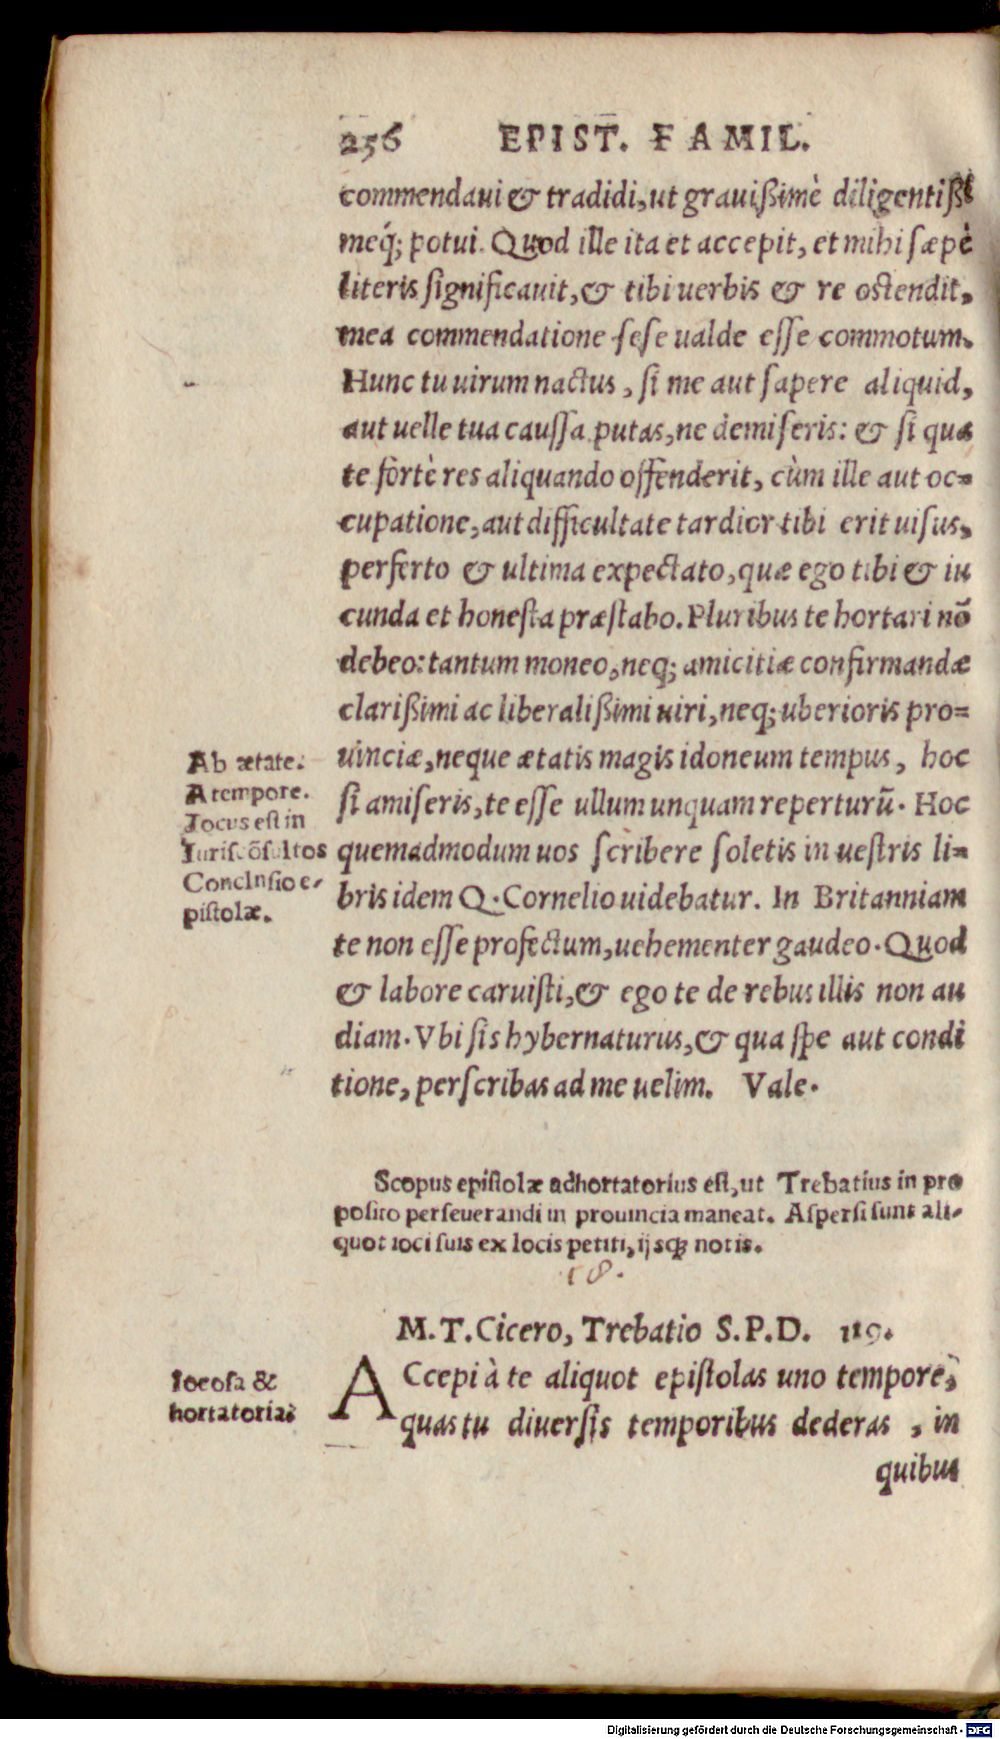 256 EPIST. FAMIL.
commendaui & tradidi, ut grauißimè diligentißi
meq́; potui. Quod ille ita et accepit, et mihi sæpè
literis significauit, & tibi uerbis & re ostendit,
mea commendatione sese ualde esse commotum.
Hunc tu uirum nactus, si me aut sapere aliquid,
aut uelle tua caussa putas, ne demiseris: & si qua
te fortè res aliquando offenderit, cùm ille aut oc=
cupatione, aut difficultate tardior tibi erit uisus,
perferto & ultima expectato, quæ ego tibi & iu
cunda et honesta præstabo. Pluribus te hortari nō
debeo: tantum moneo, neq; amicitiæ confirmandæ
clarißimi ac liberalißimi uiri, neq; uberioris pro=
uinciæ, neque ætatis magis idoneum tempus, hoc
si amiseris, te esse ullum unquam reperturū. Hoc
quemadmodum uos scribere soletis in uestris li=
bris idem Q. Cornelio uidebatur. In Britanniam
te non esse profectum, uehementer gaudeo. Quod
& labore caruisti, & ego te de rebus illis non au
diam. Vbi sis hybernaturus, & qua spe aut condi
tione, perscribas ad me uelim. Vale.
Ab ætate.
A tempore.
Iocus est in
Iuriscōsultos
Conclusio e-
pistolæ.
Scopus epistolæ adhortatorius est, ut Trebatius in pro
posito perseuerandi in prouincia maneat. Aspersi sunt ali-
quot ioci suis ex locis petiti, ijsq; notis.
18.
M. T. Cicero, Trebatio S. P. D. 119.
Iocosa &
hortatoria.
ACcepi à te aliquot epistolas uno tempore,
quas tu diuersis temporibus dederas, in
quibus
Digitalisierung gefördert durch die Deutsche Forschungsgemeinschaft - DFG